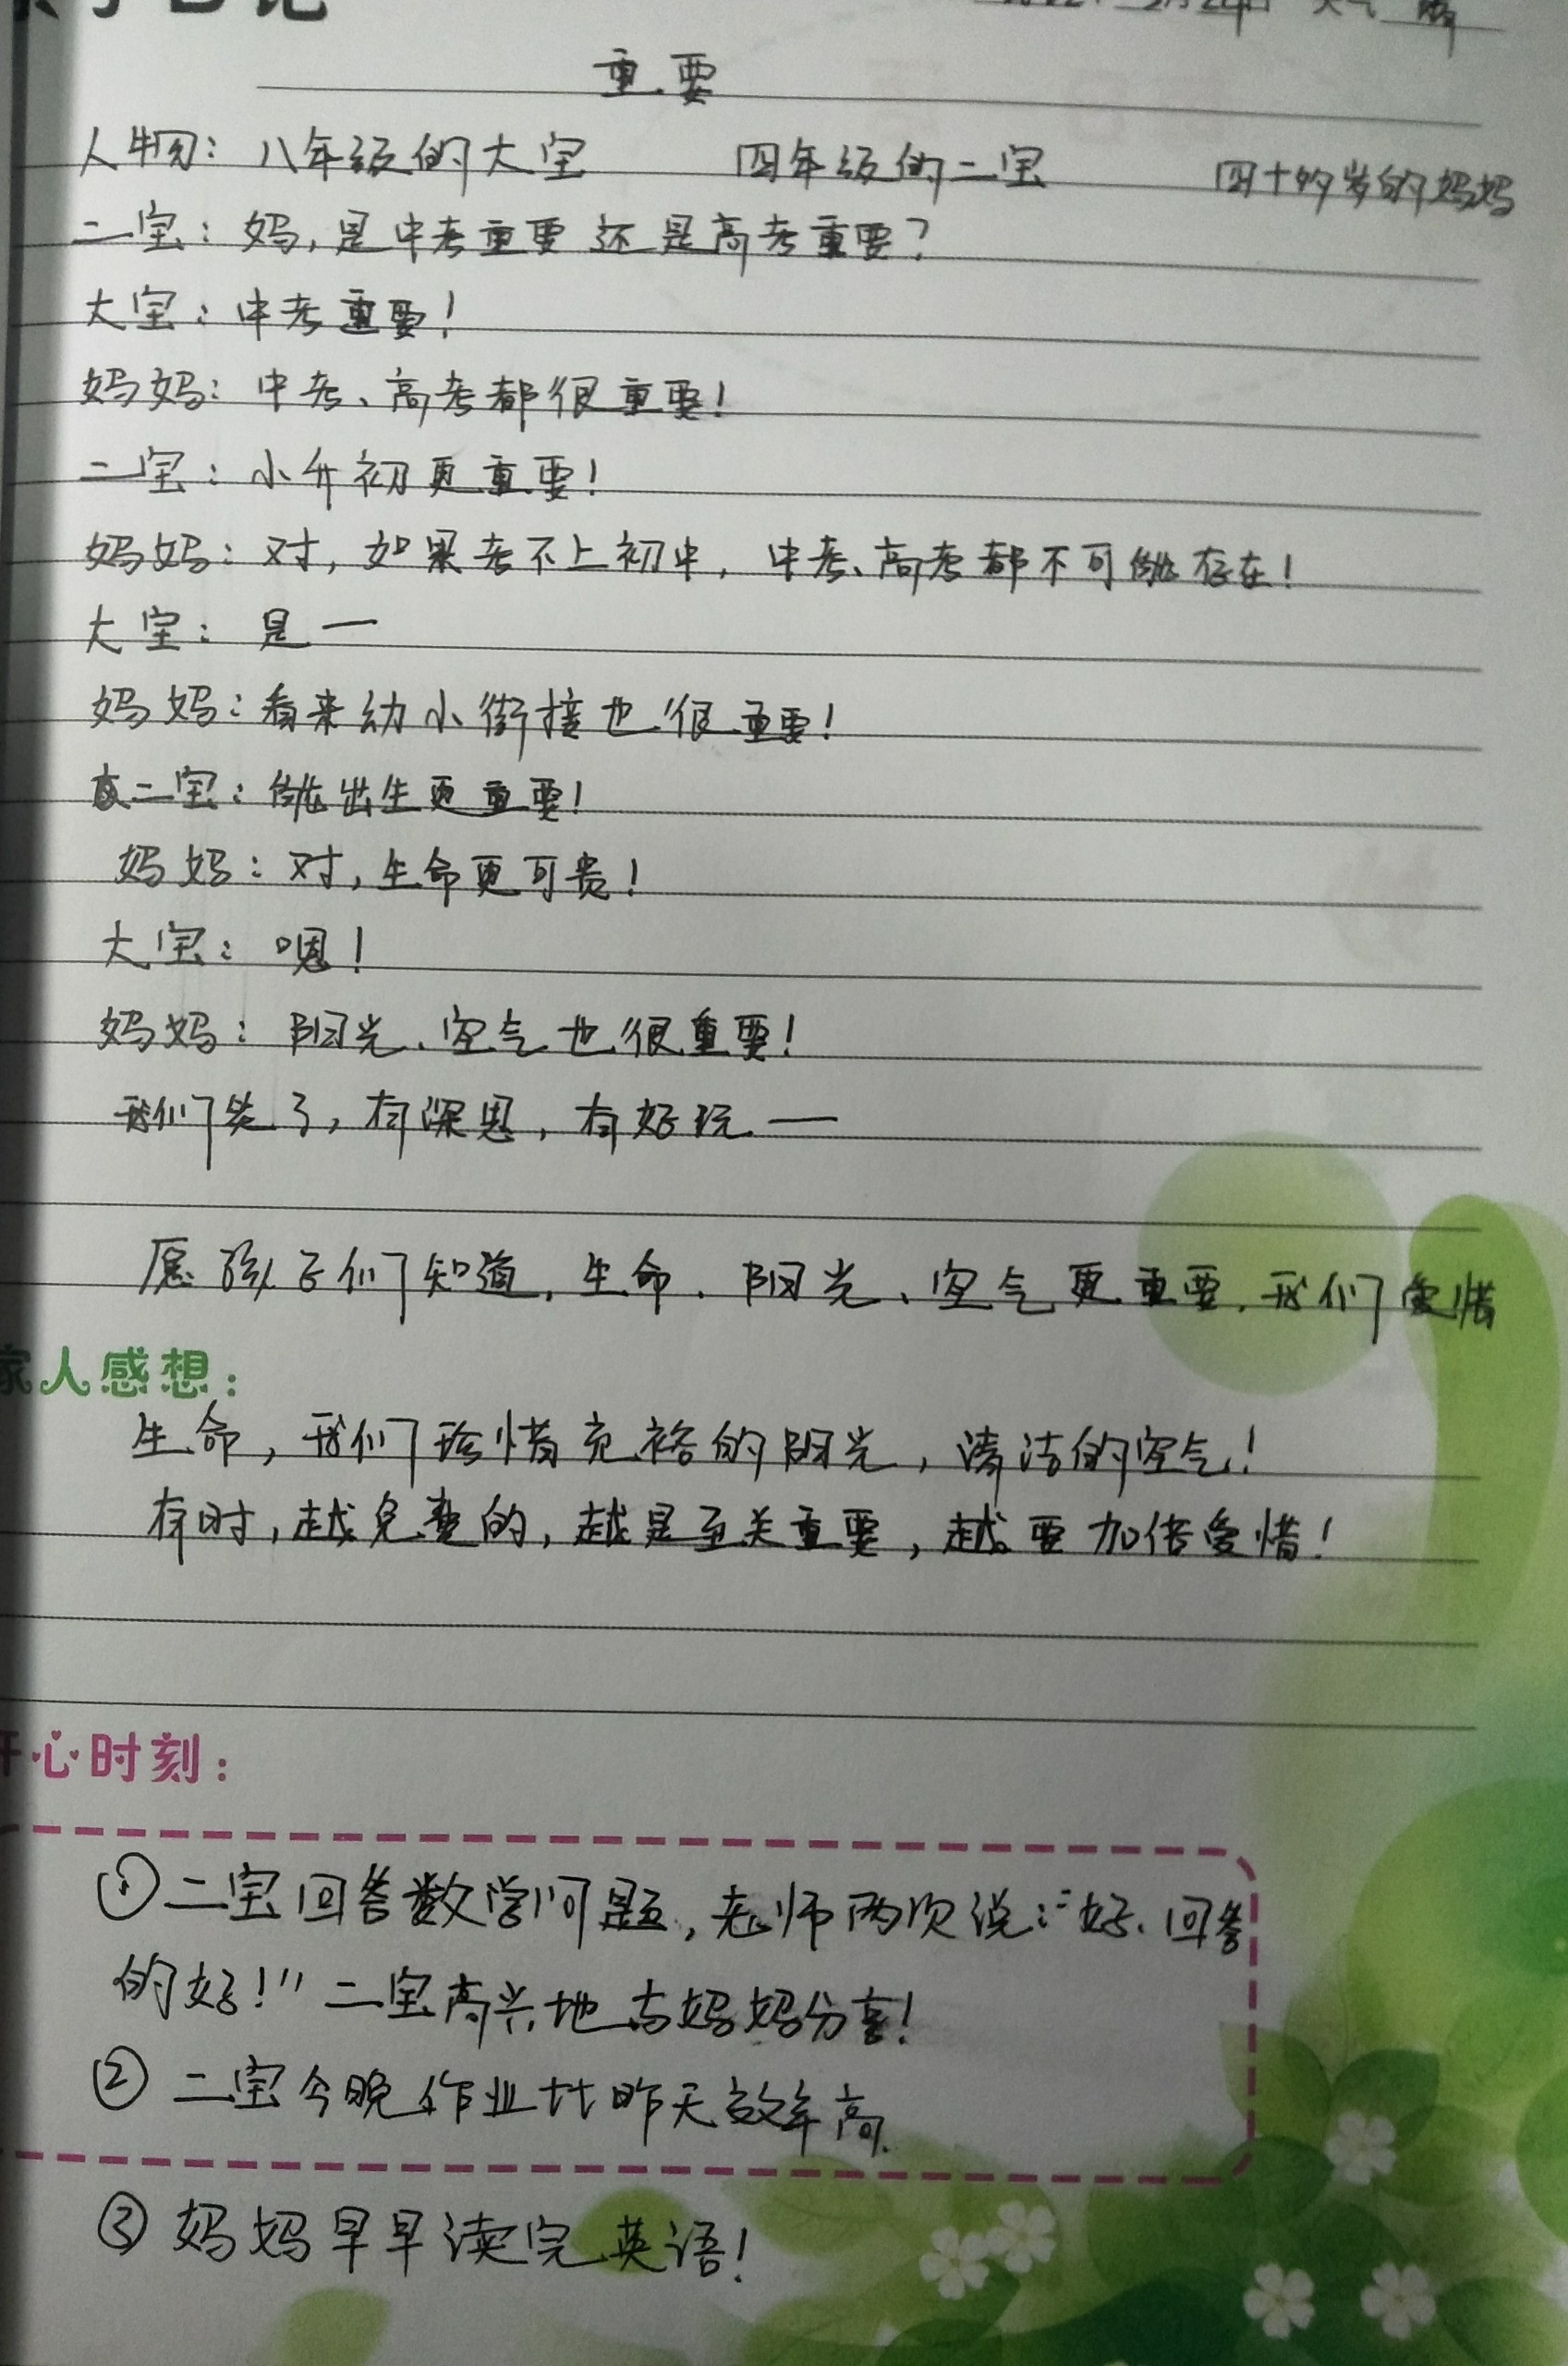 日记
2月24日 天气
重要
人物：八年级的大宝 四年级的二宝 四十的岁的妈妈
二宝：妈，是中考重要还是高考重要？
大宝：中考重要！
妈妈：中考、高考都很重要！
二宝：小升初更重要！
妈妈：对，如果考不上初中，中考、高考都不可能存在！
大宝：是一
妈妈：看来幼小衔接也很重要！
二宝：能出生更重要！
妈妈：对，生命更可贵！
大宝：嗯！
妈妈：阳光、空气也很重要！
我们笑了，有深思，有好玩一
愿孩子们知道，生命、阳光、空气更重要，我们爱惜
家人感想：
生命，我们珍惜充裕的阳光，清洁的空气！
有时，越免费的，越是至关重要，越要加倍爱惜！
开心时刻：
①二宝回答数学问题，老师两次说：“好、回答
的好！”二宝高兴地与妈妈分享！
②二宝今晚作业比昨天效率高.
③妈妈早早读完英语！